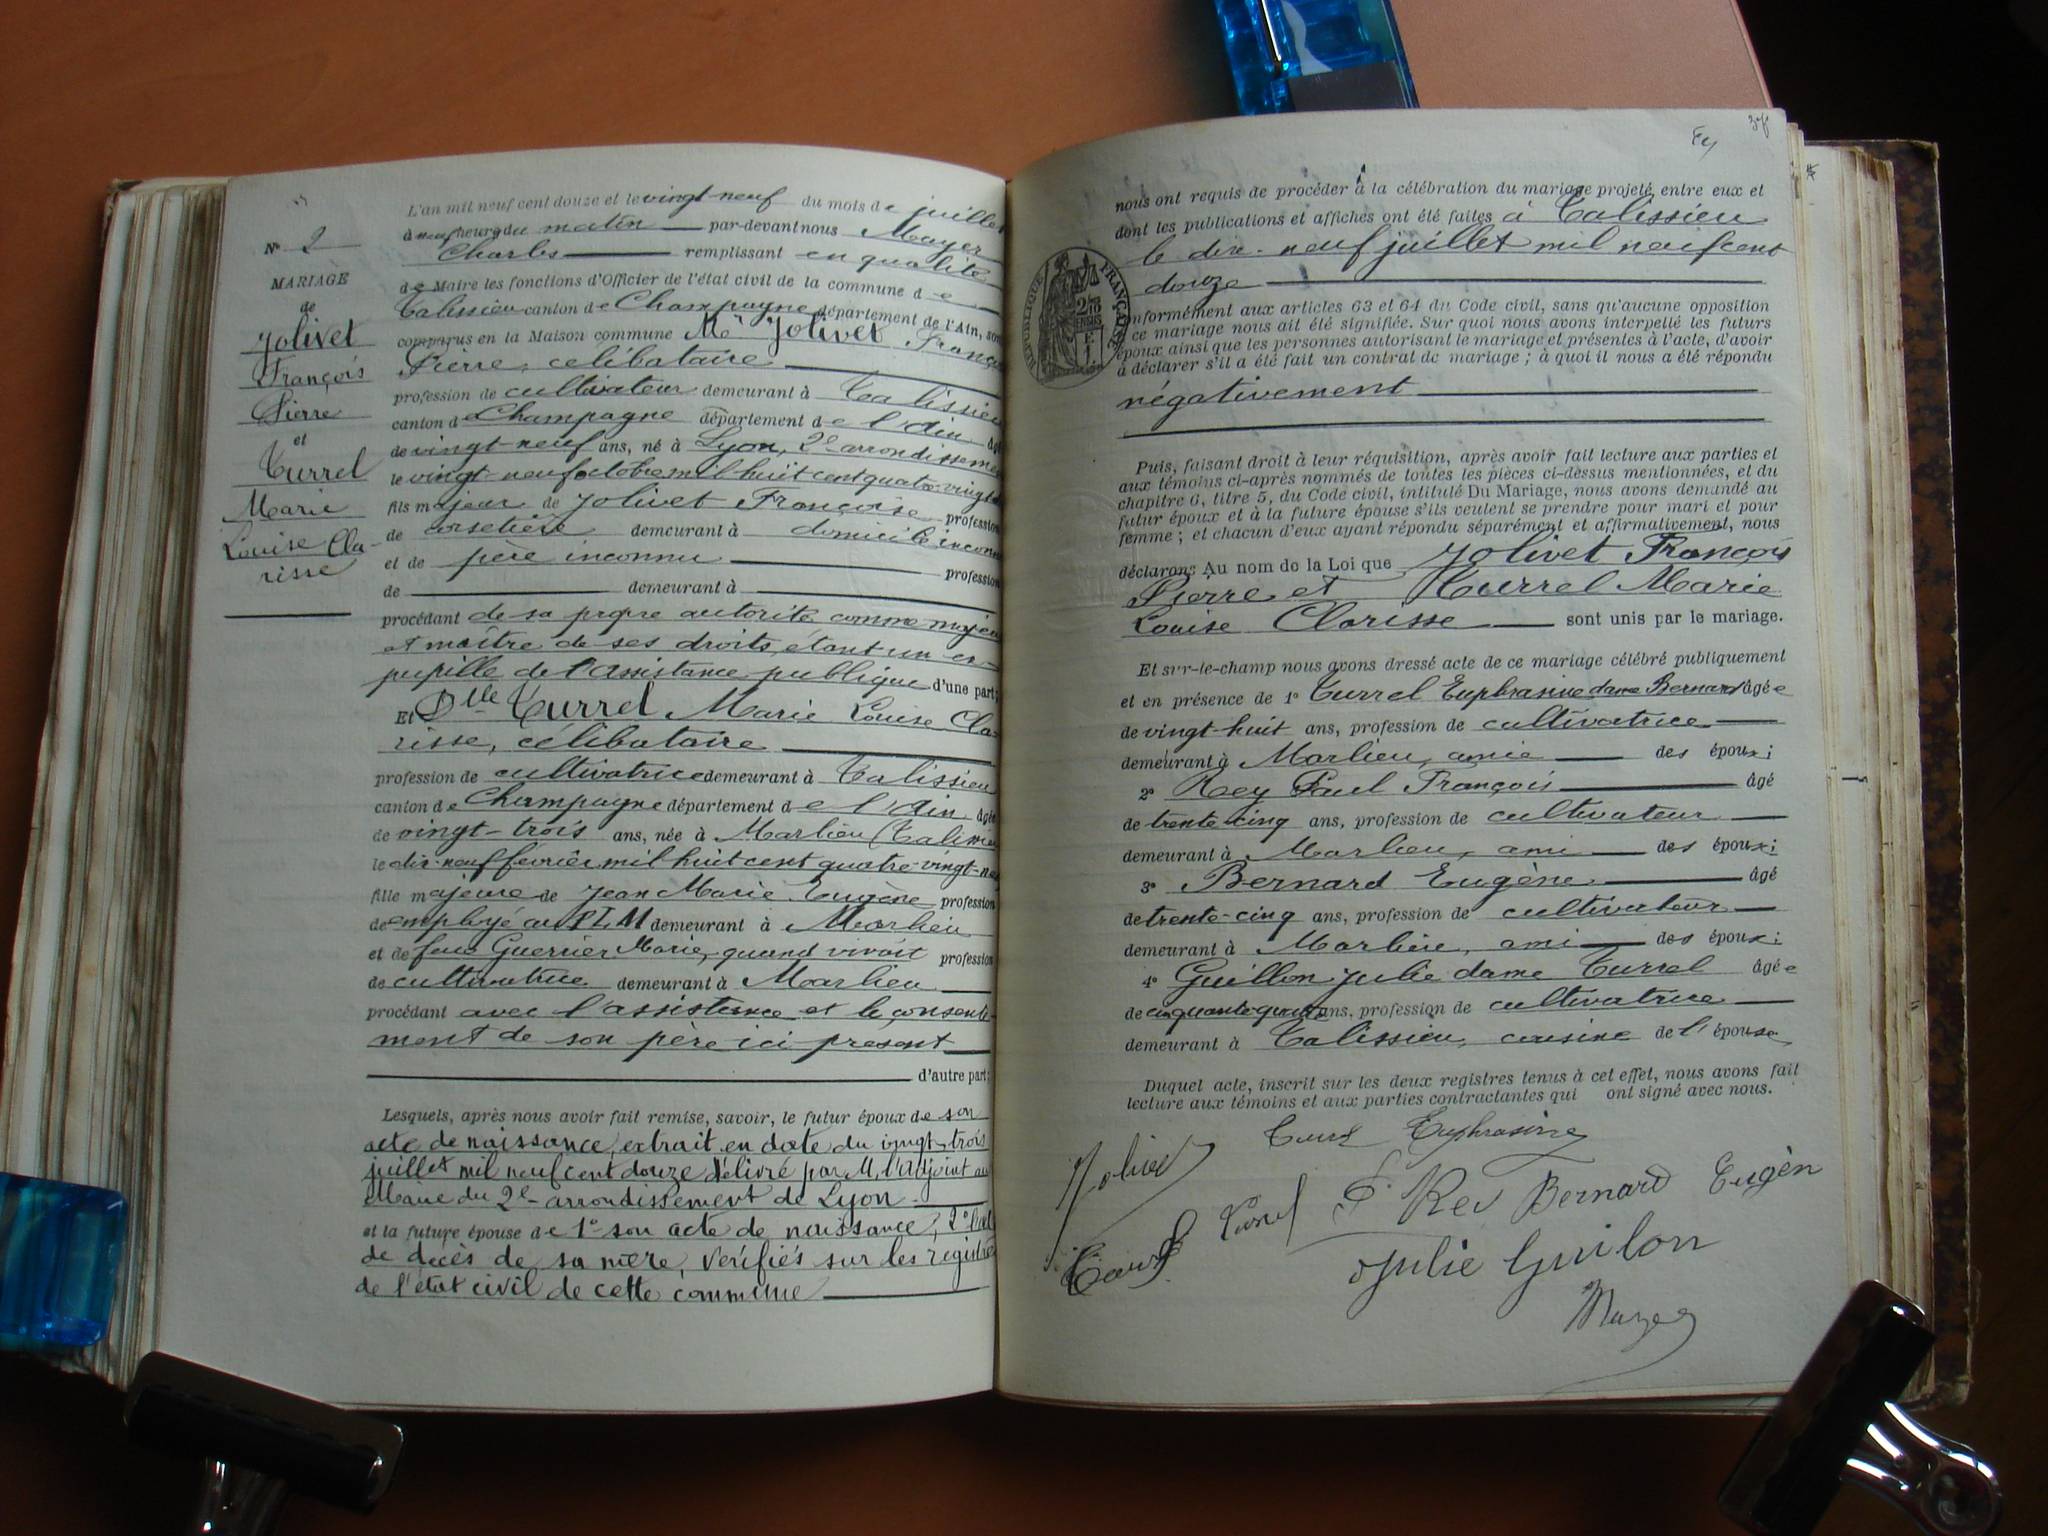 Nº 2
MARIAGE
de
Jolivet
François
Pierre
et
Turrel
Marie
Louise Cla-
risse
L'an mil neuf cent douze et le vingt-neuf du mois de juillet
à neuf heures du matin par-devant nous Mayer
Charles remplissant en qualité
de Maire les fonctions d'Officier de l'état civil de la commune de
Talissieu canton de Champagne département de l'Ain, sont
comparus en la Maison commune Mr Jolivet François
Pierre, célibataire
profession de cultivateur demeurant à Talissieu
canton de Champagne département de l'Ain âgé
de vingt-neuf ans, né à Lyon, 2e arrondissement
le vingt-neuf octobre mil huit cent quatre-vingt
fils majeur de Jolivet Françoise profession
de corsetière demeurant à domicile inconnu
et de père inconnu profession
de demeurant à
procédant de sa propre autorité comme majeur
et maître de ses droits, étant un ex-
pupille de l'assistance publique d'une part;
Et Dlle Turrel Marie Louise Cla-
risse, célibataire
profession de cultivatrice demeurant à Talissieu
canton de Champagne département de l'Ain âgée
de vingt-trois ans, née à Marlieu (Talissieu
le dix-neuf février mil huit cent quatre-vingt-neuf
fille majeure de Jean Marie Eugène profession
de employé au PLM demeurant à Marlieu
et de feue Guerrier Marie, quand vivait profession
de cultivatrice demeurant à Marlieu
procédant avec l'assistance et le consente-
ment de son père ici présent
d'autre part;
Lesquels, après nous avoir fait remise, savoir, le futur époux de son
acte de naissance, extrait en date du vingt-trois
juillet mil neuf cent douze délivré par M. l'Adjoint au
Maire du 2e arrondissement de Lyon
et la future épouse de 1º son acte de naissance, 2º l'acte
de décès de sa mère, vérifiés sur les registres
de l'état civil de cette commune
nous ont requis de procéder à la célébration du mariage projeté entre eux et
dont les publications et affiches ont été faites à Talissieu
le dix-neuf juillet mil neuf cent
douze
RÉPUBLIQUE FRANÇAISE
conformément aux articles 63 et 64 du Code civil, sans qu'aucune opposition
à ce mariage nous ait été signifiée. Sur quoi nous avons interpellé les futurs
époux ainsi que les personnes autorisant le mariage et présentes à l'acte, d'avoir
à déclarer s'il a été fait un contrat de mariage ; à quoi il nous a été répondu
négativement
Puis, faisant droit à leur réquisition, après avoir fait lecture aux parties et
aux témoins ci-après nommés de toutes les pièces ci-dessus mentionnées, et du
chapitre 6, titre 5, du Code civil, intitulé Du Mariage, nous avons demandé au
futur époux et à la future épouse s'ils veulent se prendre pour mari et pour
femme ; et chacun d'eux ayant répondu séparément et affirmativement, nous
déclarons Au nom de la Loi que Jolivet François
Pierre et Turrel Marie
Louise Clarisse sont unis par le mariage.
Et sur-le-champ nous avons dressé acte de ce mariage célébré publiquement
et en présence de 1º Turrel Euphrasine dame Bernard âgée
de vingt-huit ans, profession de cultivatrice
demeurant à Marlieu, amie des époux;
2º Rey Paul François âgé
de trente-cinq ans, profession de cultivateur
demeurant à Marlieu, ami des époux;
3º Bernard Eugène âgé
de trente-cinq ans, profession de cultivateur
demeurant à Marlieu, ami des époux;
4º Guillon Julie dame Turrel âgée
de cinquante-quatre ans, profession de cultivatrice
demeurant à Talissieu, cousine de l'épouse
Duquel acte, inscrit sur les deux registres tenus à cet effet, nous avons fait
lecture aux témoins et aux parties contractantes qui ont signé avec nous.
Jolivet Turrel Euphrasine
Turrel P. Rey Bernard Eugèn
Julie Guilon
Mayer